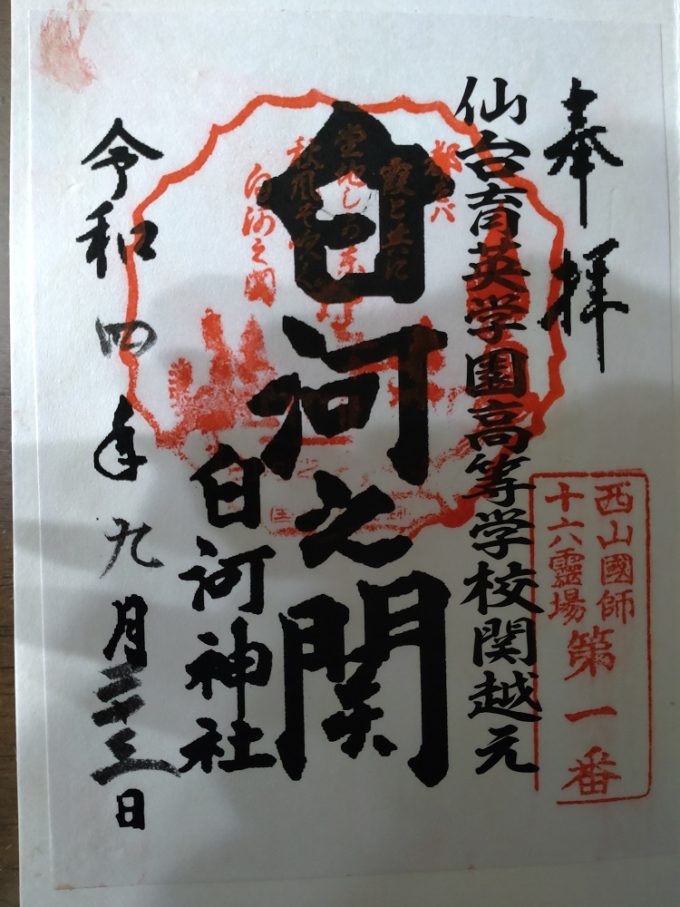 奉拝
西山國師
十六靈場
第一番
仙台育英学園高等学校関越え
都をバ
霞と共に
白河之関
白河之関
白河神社
令和四年九月二十三日